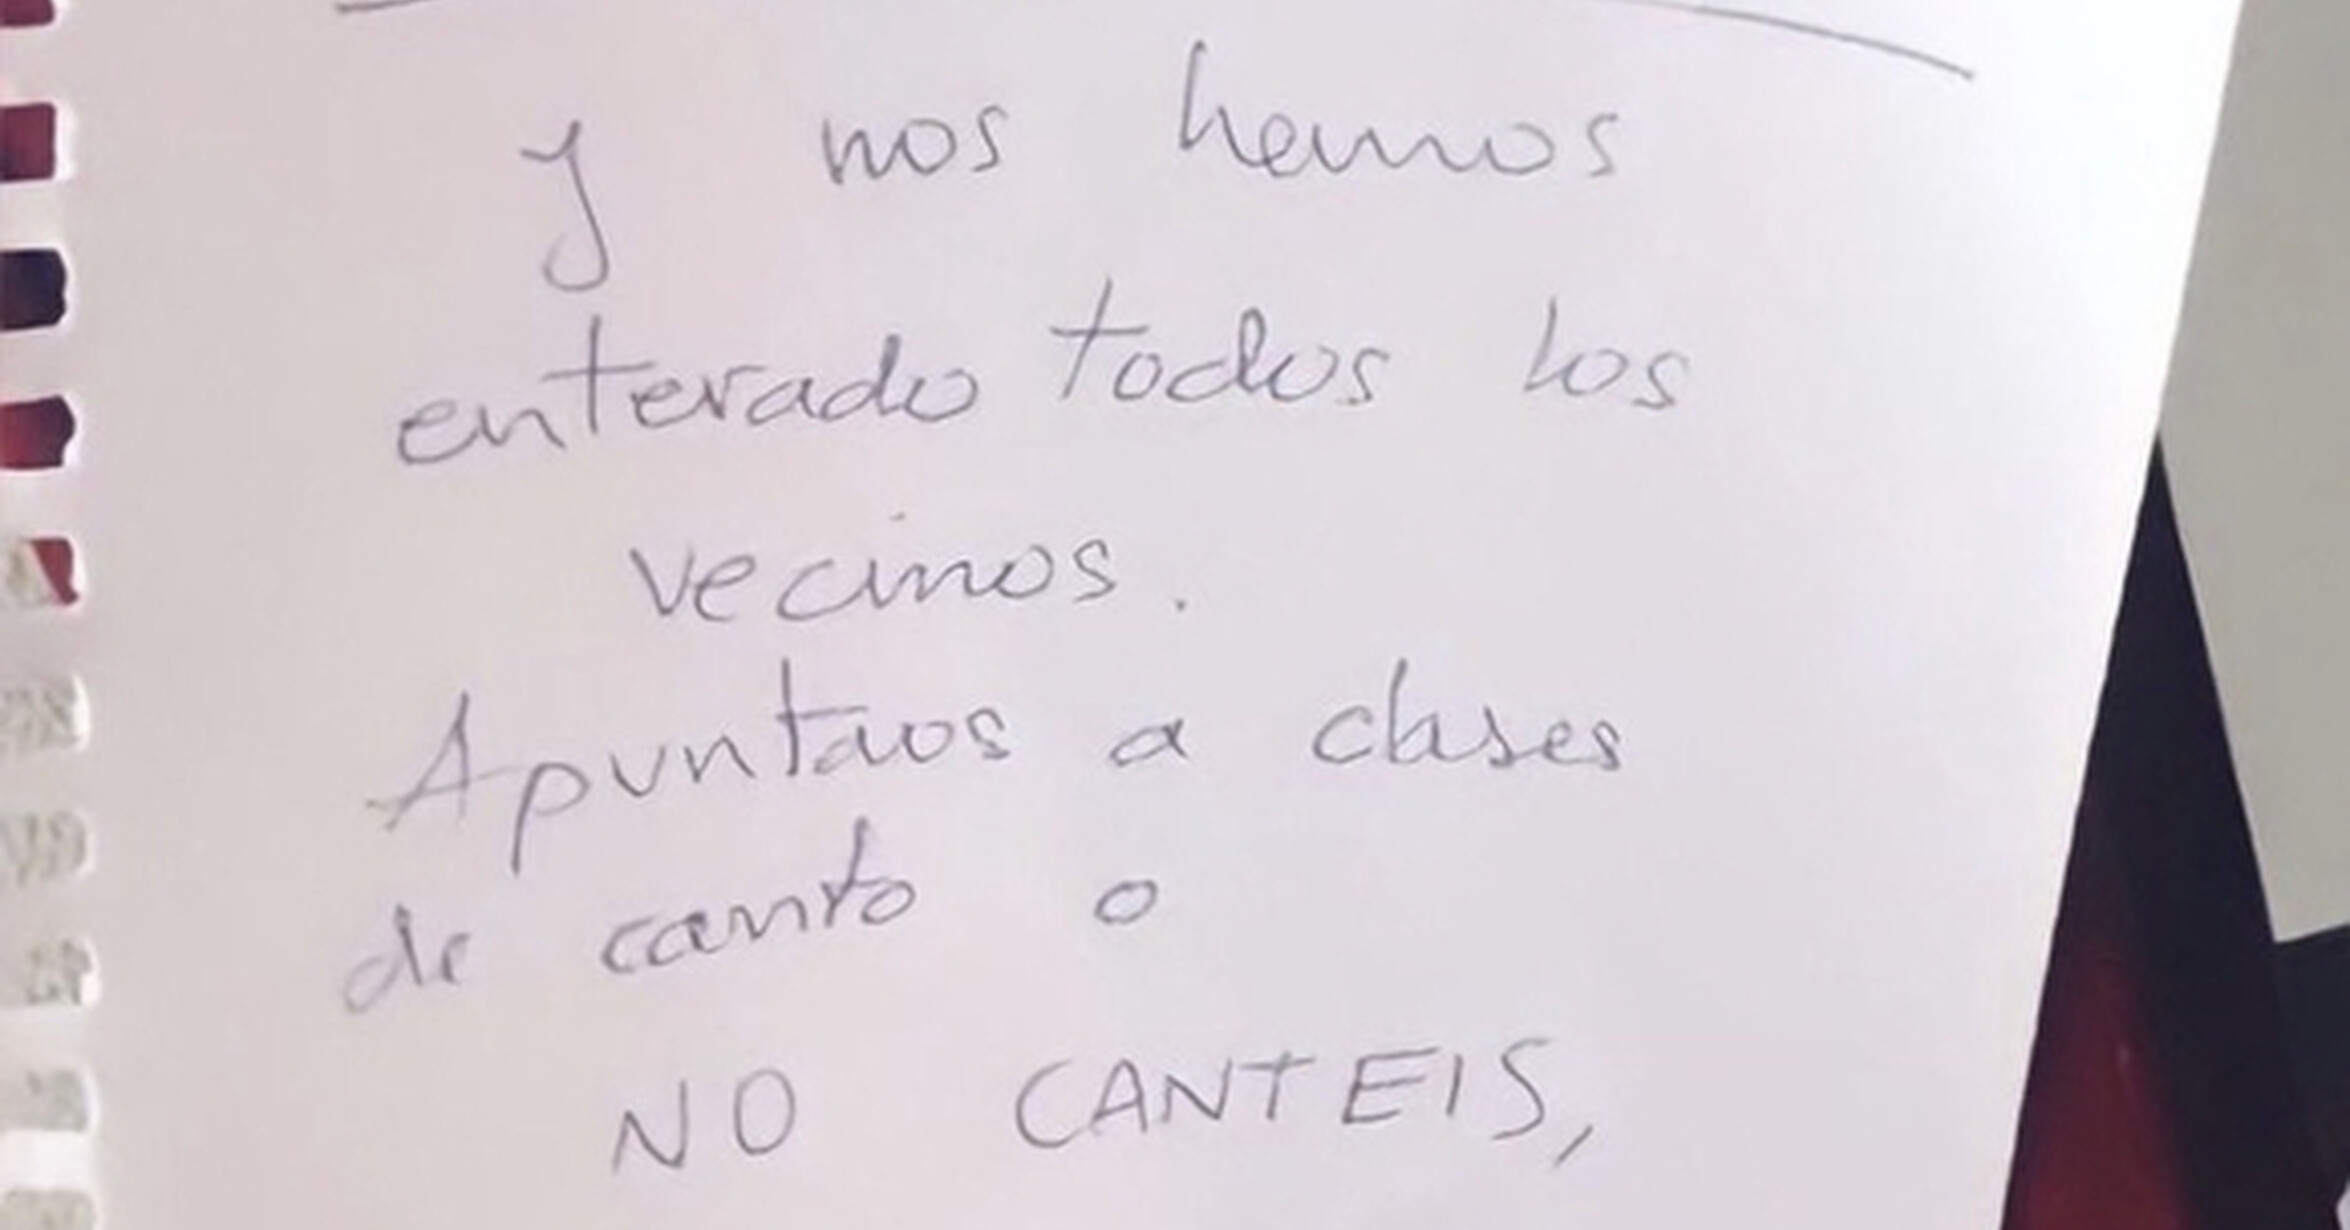 y nos hemos
enterado todos los
vecinos.
Apuntaos a clases
de canto o
NO CANTEIS,